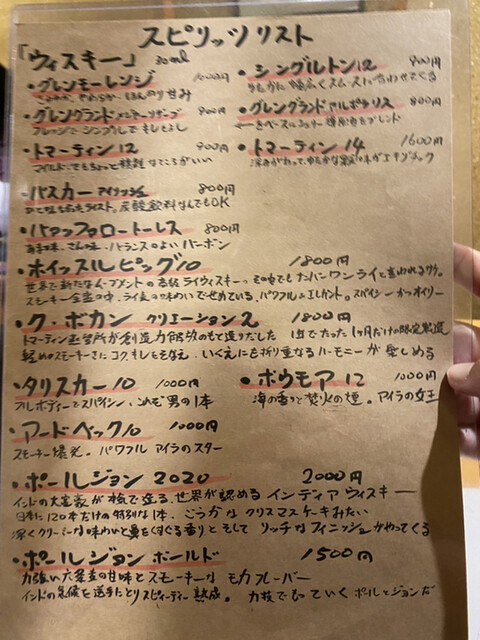 スピリッツリスト
「ウィスキー」 30ml
・グレンモーレンジ 1000円
ほんのり甘み
・シングルトン12 900円
幅広くスムースに合わせてくる
・グレングラント 900円
・グレングラント アルボラリス 800円
をベースにシェリー樽原酒をブレンド
・トマーティン12 900円
マイルド、でもちょっと複雑なところがいい
・トマーティン14 1600円
・バスカーアイリッシュ 800円
炭酸飲料なんでもOK
・バッファロートレース 800円
バランスのよいバーボン
・ホイッスルピッグ10 1800円
世界で新たなムーブメントの高級ライウィスキー。その中でもナンバーワンライと言われるウイ。
スモーキー全盛の中、ライ麦の味わいで攻めている。パワフル&エレガント。スパイシーかつオイリー
・ク・ボカン クリエーション2 1800円
トマーティン蒸留所が創造力解放のもと造りだした 1年でたった1ヶ月だけの限定製造
軽めのスモーキーさにコク、キレもそなえ、いくえにも折り重なるハーモニーが楽しめる
・タリスカー10 1000円
フルボディーでスパイシー、これぞ男の1本
・ボウモア12 1000円
海の香りと焚火の煙。アイラの女王
・アードベック10 1000円
スモーキー爆発。パワフル アイラのスター
・ポールジョン2020 2000円
インドの大富豪が株で造る、世界が認めるインディアウィスキー
日本に120本だけの特別な1本。ごうかなクリスマスケーキみたい
深くクリーミーな味わいと鼻をくすぐる香りとそしてリッチなフィニッシュがやってくる
・ポールジョン ボールド 1500円
力強い六条麦の甘味とスモーキーなモカフレーバー
インドの気候を逆手にとりスピーディー熟成。力技でもっていくポールとジョンだ